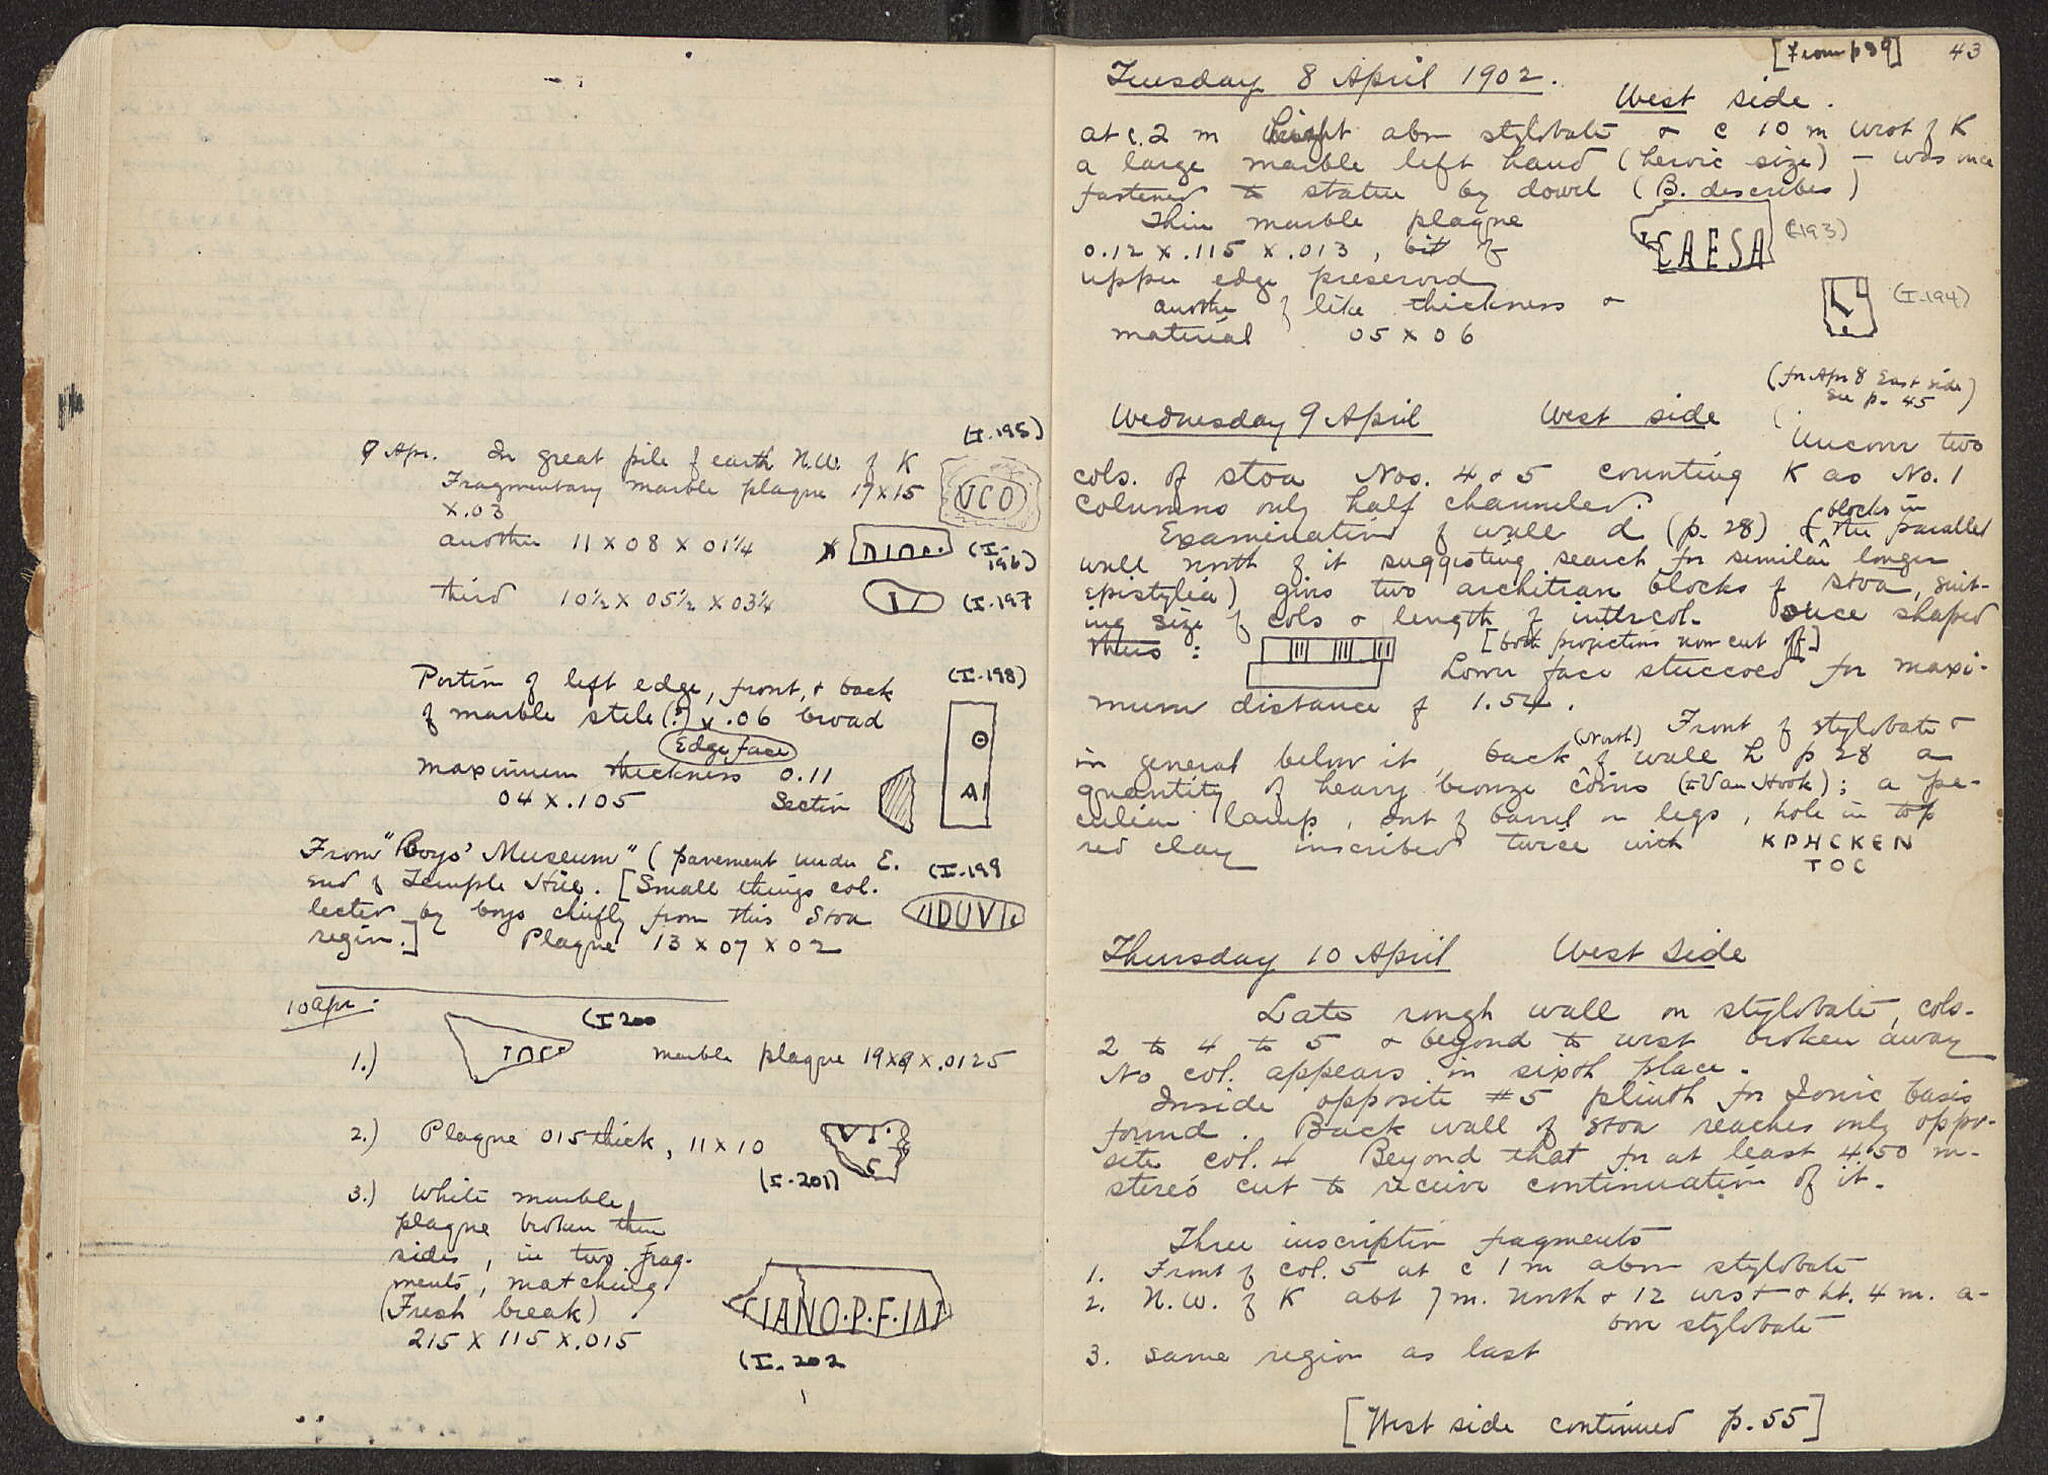 9 Apr. In great pile of earth N.W. of K
(I-195)
Fragmentary marble plaque 17 x 15
x .03
VCO
another 11 x 08 x 01¼
(I-196)
third 10½ x 05½ x 03¼
(I-197
Portion of left edge, front, & back
(I-198)
of marble stele (?) .06 broad
Edge face
maximum thickness 0.11
04 x .105 Section
Θ
AI
From "Boys' Museum" (pavement under E.
(I-199
end of Temple Hill. [Small things col-
lected by boys chiefly from this Stoa
region.] Plaque 13 x 07 x 02
IDUVI
10 Apr.
(I 200
1.) marble plaque 19 x 9 x .0125
2.) Plaque 015 thick, 11 x 10
(I-201)
3.) White marble
plaque broken three
sides, in two frag-
ments, matching
(Fresh break)
215 x 115 x .015
CIANO·P·F·IAI
(I-202
[From p 39] 43
Tuesday 8 April 1902.
West side.
at c. 2 m height above stylobate & c 10 m west of K
a large marble left hand (heroic size) – was once
fastened to statue by dowel (B. describes)
Thin marble plaque
0.12 x .115 x .013, bit of
upper edge preserved
CAESA
(I-193)
another of like thickness &
material 05 x 06
(I-194)
(for Apr 8 East side
see p. 45)
Wednesday 9 April West side
Uncover two
cols. of stoa Nos. 4 & 5 counting K as No. 1
Columns only half channeled.
Examination of wall d (p. 28) (& blocks in the parallel
wall north of it suggesting search for similar longer
epistylia) gives two architrave blocks of stoa, suit-
ing size of cols & length of intercol. once shaped
thus: [both projections now cut off]
Lower face stuccoed for maxi-
mum distance of 1.54.
Front of stylobate &
in general below it, back (North) of wall h p 28 a
quantity of heavy bronze coins (I-Van Hook); a pe-
culiar lamp, sort of barrel on legs, hole in top
red clay inscribed twice with KPHCKEN
TOC
Thursday 10 April West Side
Late rough wall on stylobate, cols.
2 to 4 to 5 & beyond to west broken away
No col. appears in sixth place.
Inside opposite #5 plinth for Ionic basis
found. Back wall of stoa reaches only oppo-
site col. 4 Beyond that for at least 4.50 m.
stereo cut to receive continuation of it.
Three inscription fragments
1. Front of col. 5 at c 1 m above stylobate
2. N.W. of K abt 7 m. north & 12 west & ht. 4 m. a-
bove stylobate
3. same region as last
[West side continued p. 55]